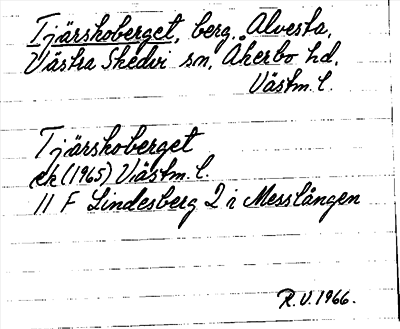 Tjärskoberget, berg. Alvesta,
Västra Skedvi sn, Åkerbo hd,
Västm. l.
Tjärskoberget
ek (1965) Västm. l.
11 F Lindesberg 2 i Messlången
R.V. 1966.